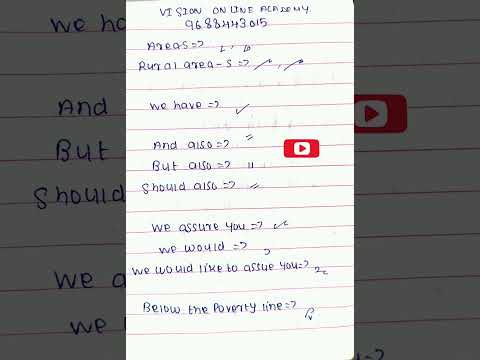 VISION ONLINE ACADEMY
9688443015
Areas=>
Rural area-s=>
We have=>
And also=> "
But also=> "
Should also=> "
We assure you=>
We would=>
We would like to assue you=>
Below the Poverty line=>
we ha
And
But
Shou
We a
we
We wo